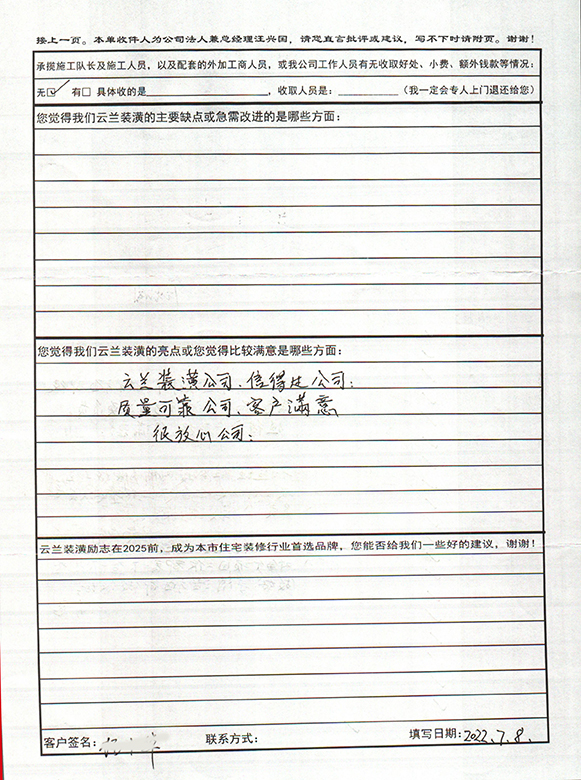 接上一页。本单收件人为公司法人兼总经理汪兴国，请您直言批评或建议，写不下时请附页。谢谢！
承揽施工队长及施工人员，以及配套的外加工商人员，或我公司工作人员有无收取好处、小费、额外钱款等情况：
无☑ 有□ 具体收的是____________，收取人员是：________（我一定会专人上门退还给您）
您觉得我们云兰装潢的主要缺点或急需改进的是哪些方面：
您觉得我们云兰装潢的亮点或您觉得比较满意是哪些方面：
云兰装潢公司、信得过公司：
质量可靠公司、客户满意
很放心公司：
云兰装潢励志在2025前，成为本市住宅装修行业首选品牌，您能否给我们一些好的建议，谢谢！
客户签名： 联系方式： 填写日期：2022.7.8.